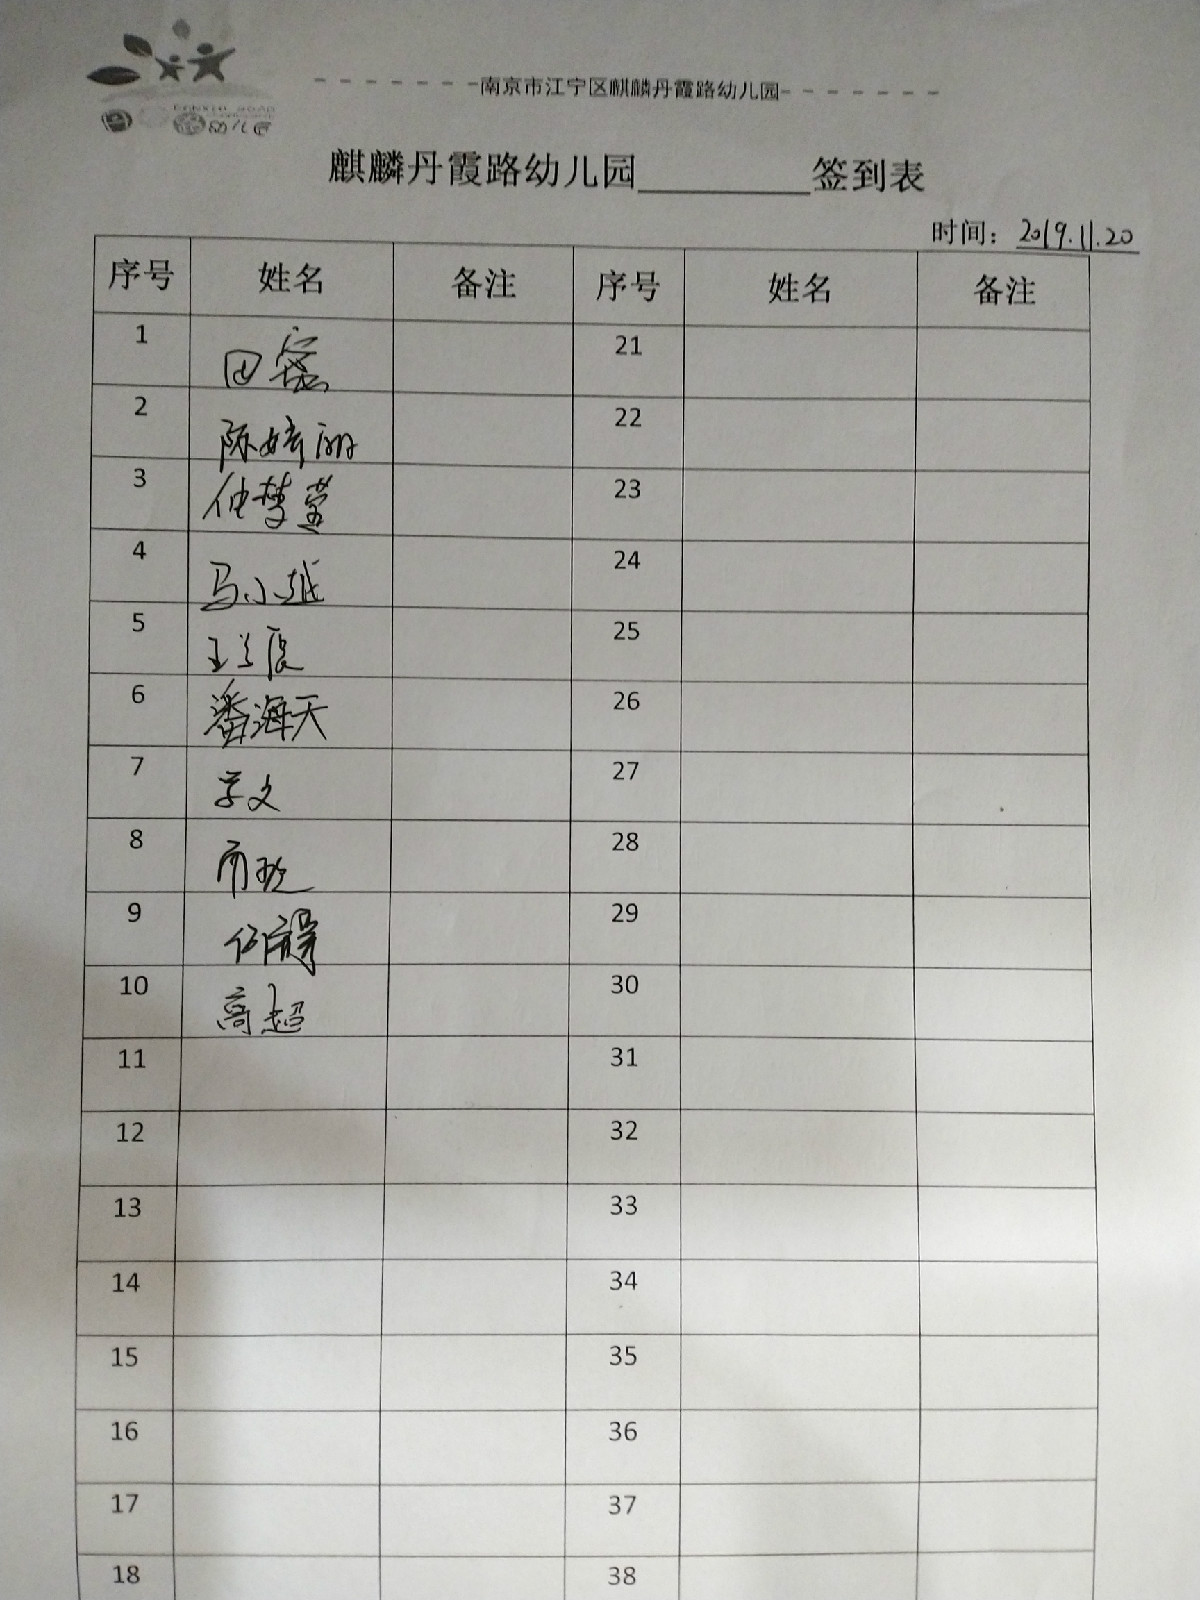 南京市江宁区麒麟丹霞路幼儿园
幼儿园
麒麟丹霞路幼儿园 签到表
时间：2019.11.20
序号 姓名 备注 序号 姓名 备注
1 田蜜 21
2 陈婷丽 22
3 仲梦莹 23
4 马小越 24
5 25
6 潘海天 26
7 27
8 28
9 29
10 高超 30
11 31
12 32
13 33
14 34
15 35
16 36
17 37
18 38